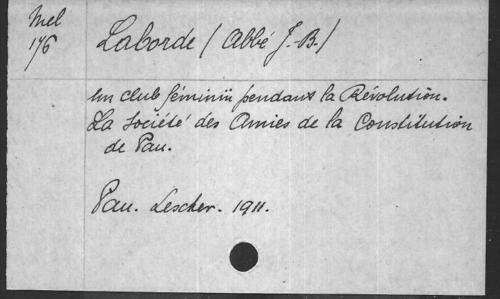 Mel
176
Laborde (Abbé J.-B.)
Un club féminin pendant la Révolution.
La Société des Amies de la Constitution
de Pau.
Pau. Lescher. 1911.